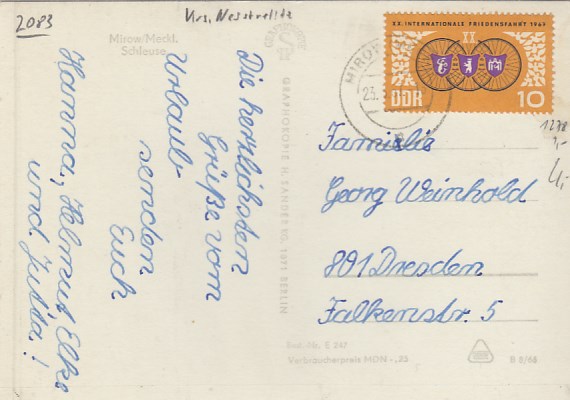 2083
Krs. Neustrelitz
Mirow/Meckl.
Schleuse
Die herzlichsten
Grüße vom
Urlaub
senden
Euch
Hanna, Helmut Elke
und Jutta!
GRAPHOKOPIE H. SANDER KG. 1071 BERLIN
XX. INTERNATIONALE FRIEDENSFAHRT 1967
XX
DDR
10
MIROW
23.
1278
1,-
4,-
Familie
Georg Weinhold
801 Dresden
Falkenstr. 5
Best. Nr. E 247
Verbraucherpreis MDN -,25
B 8/66